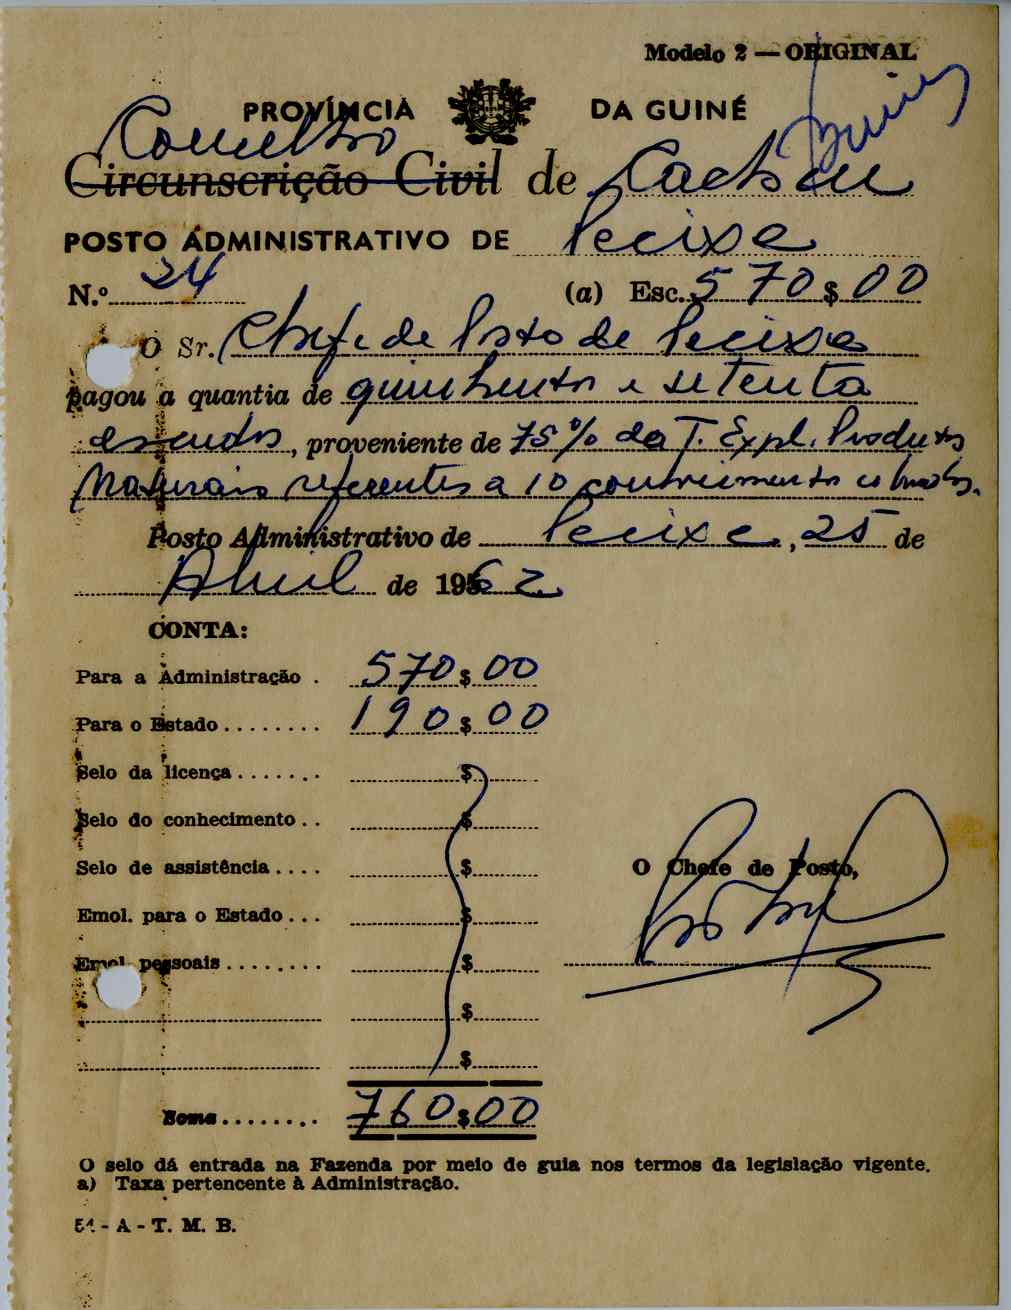 Modelo 2 — ORIGINAL
PROVÍNCIA DA GUINÉ
Concelho
Circunscrição Civil de Cacheu
POSTO ADMINISTRATIVO DE Pecixe
N.º 24 (a) Esc. 570 $ 00
O Sr. Chefe de Posto de Pecixe
pagou a quantia de quinhentos e setenta
escudos, proveniente de 75% da T. Expl. Produtos
Naturais referentes a 10 conhecimentos cobrados.
Posto Administrativo de Pecixe, 25 de
Abril de 1962
CONTA:
Para a Administração . 570 $ 00
Para o Estado ........ 190 $ 00
Selo da licença ....... $
Selo do conhecimento .. $
Selo de assistência .... $
O Chefe de Posto,
Emol. para o Estado ... $
Emol. pessoais ........ $
$
$
Soma ........ 760 $ 00
O selo dá entrada na Fazenda por meio de guia nos termos da legislação vigente.
a) Taxa pertencente à Administração.
54 - A - T. M. B.